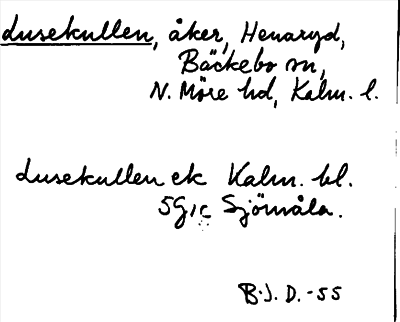 Lusekullen, åker, Henaryd,
Bäckebo sn,
N. Möre hd, Kalm. l.
Lusekullen ek Kalm. bl.
5G1c Sjömåla.
B.J. D. -55